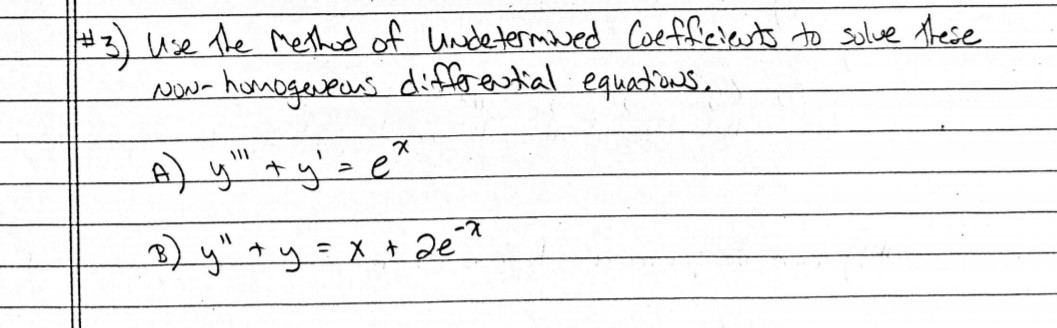 #3) Use the Method of Undetermined Coefficients to solve these
Non-homogeneous differential equations.
A) y''' + y' = e^x
B) y'' + y = x + 2e^-x